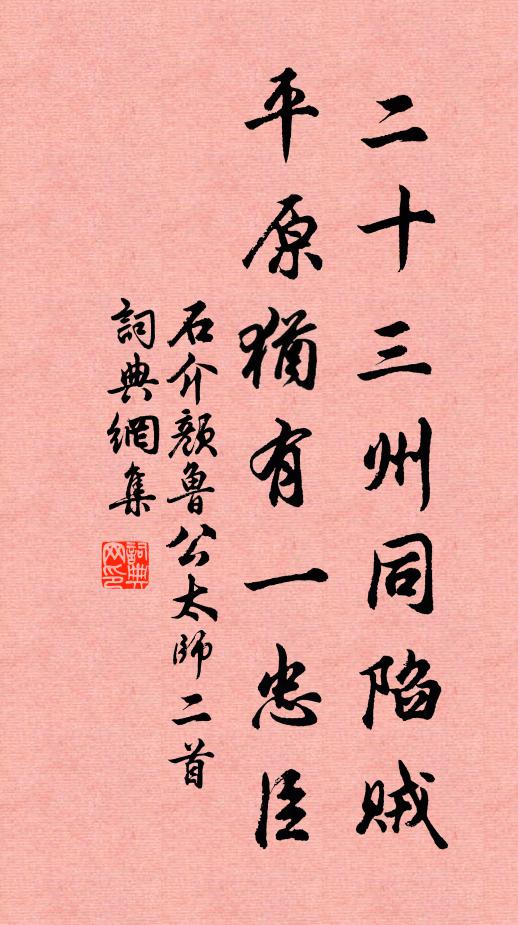 二十三州同陷賊
平原猶有一忠臣
石介顏魯公太師二首
詞典網集
詞典網印